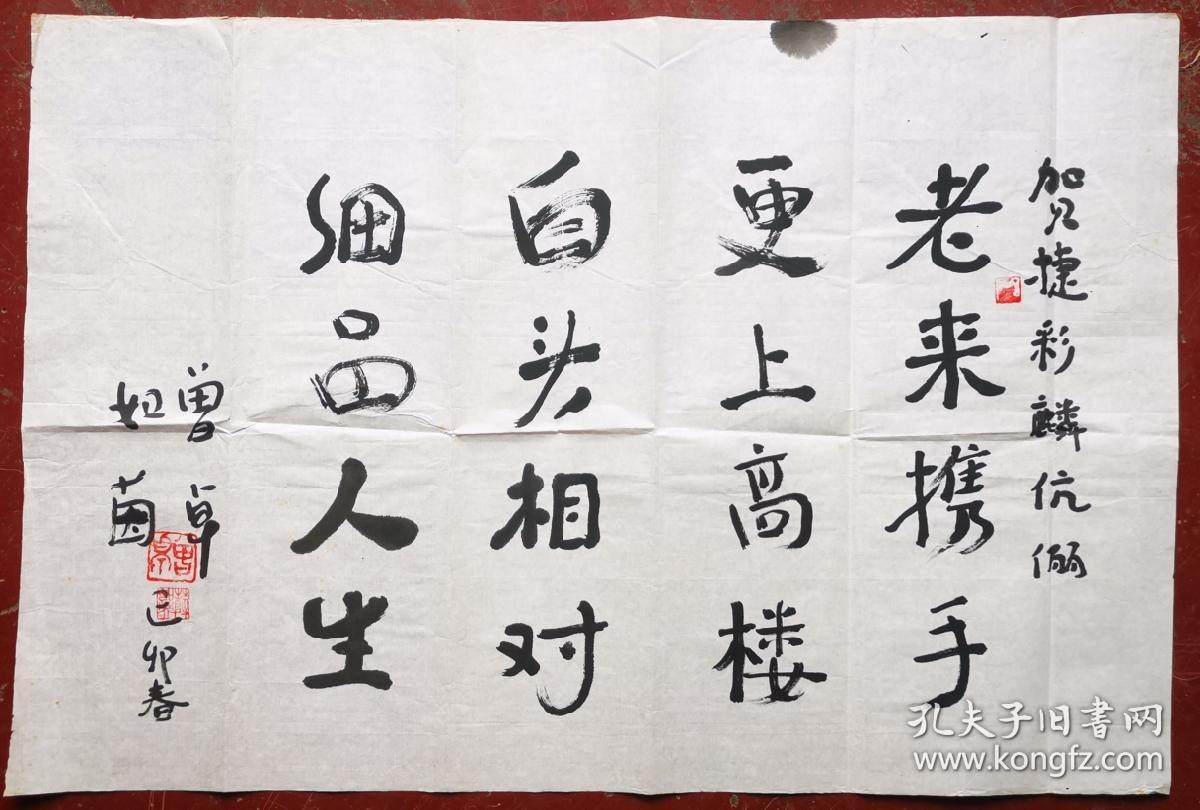 贺捷彩麟伉俪
老来携手
更上高楼
白头相对
细品人生
曾卓
如茵
己卯春
孔夫子旧書网
www.kongfz.com